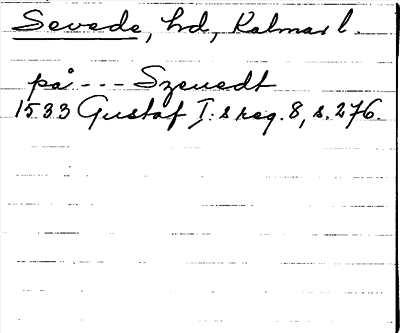 Sevede, hd, Kalmar l.
på --- Szeuedt
1533 Gustaf I:s reg. 8, s. 276.